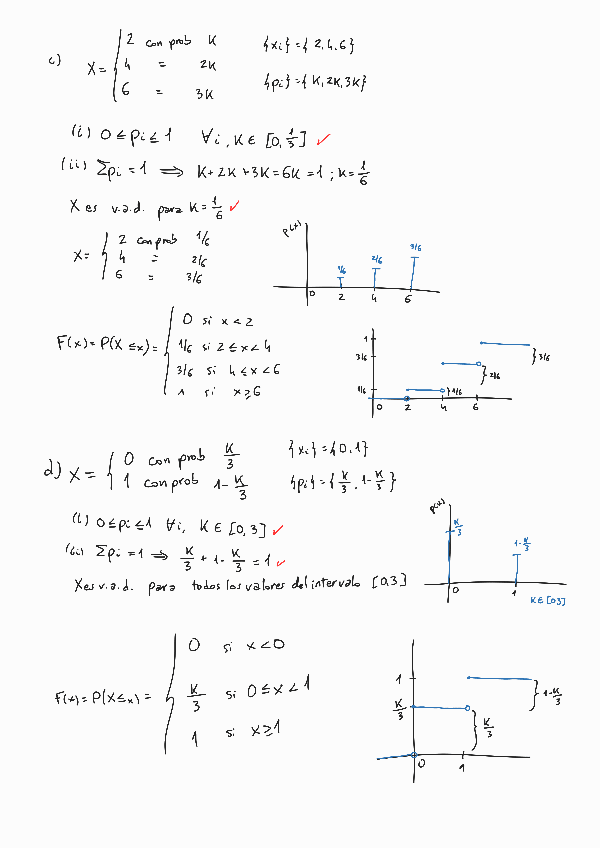 c) X = { 2 con prob K {xi} = {2,4,6}
4 = 2K
6 = 3K {pi} = {K, 2K, 3K}
(i) 0 ≤ pi ≤ 1 ∀i, K ∈ [0, 1/3] ✓
(ii) Σpi = 1 ⟹ K + 2K + 3K = 6K = 1 ; K = 1/6
X es v.a.d. para K = 1/6 ✓
X = { 2 con prob 1/6
4 = 2/6
6 = 3/6
p(x)
1/6 2/6 3/6
0 2 4 6
F(x) = P(X ≤ x) = { 0 si x < 2
1/6 si 2 ≤ x < 4
3/6 si 4 ≤ x < 6
1 si x ≥ 6
1
3/6
1/6
}1/6 }2/6 }3/6
0 2 4 6
d) X = { 0 con prob K/3 {xi} = {0,1}
1 con prob 1 - K/3 {pi} = {K/3, 1 - K/3}
(i) 0 ≤ pi ≤ 1 ∀i, K ∈ [0,3] ✓
(ii) Σpi = 1 ⟹ K/3 + 1 - K/3 = 1 ✓
X es v.a.d. para todos los valores del intervalo [0,3]
p(x)
K/3 1-K/3
0 1
K ∈ [0,3]
F(x) = P(X ≤ x) = { 0 si x < 0
K/3 si 0 ≤ x < 1
1 si x ≥ 1
1
K/3
}K/3 }1-K/3
0 1